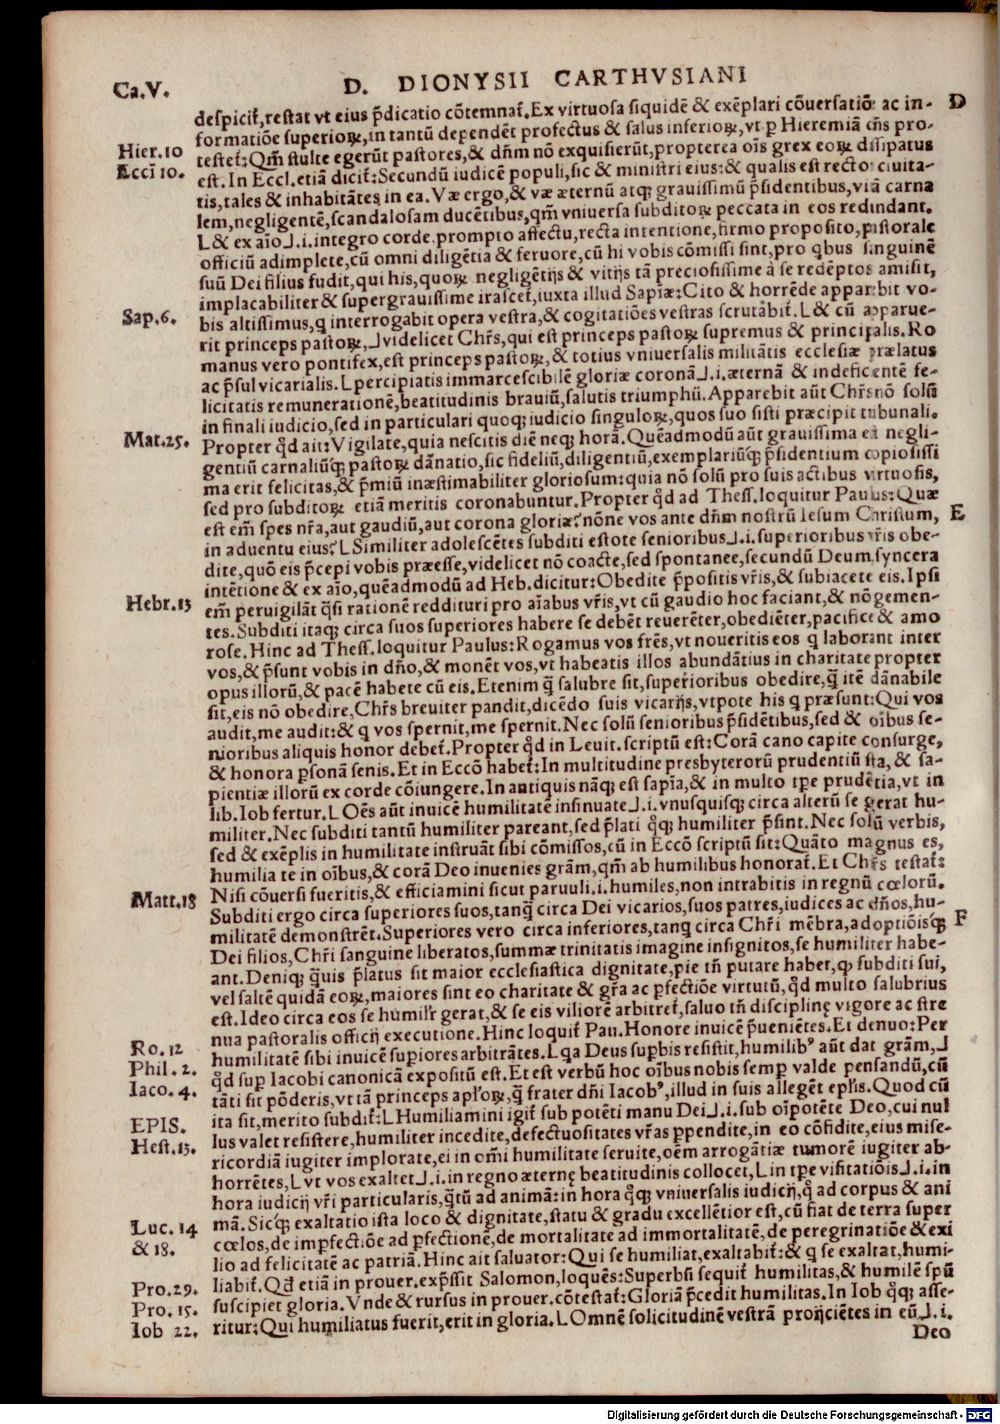 Ca.V.
D. DIONYSII CARTHVSIANI
despicit̃,restat vt eius p̃dicatio cõtemnat̃.Ex virtuosa siquidẽ & exẽplari cõuersatiõe ac in- D
formatiõe superioꝝ,in tantũ dependẽt profectus & salus inferioꝝ,vt ꝑ Hieremiã ƌns pro-
Hier.10 testet̃:Qm̃ stulte egerũt pastores,& dñm nõ exquisierũt,propterea oĩs grex eoꝝ dissipatus
Eccĩ 10. est.In Eccl.etiã dicit̃:Secundũ iudicẽ populi,sic & ministri eius:& qualis est rector ciuita-
tis,tales & inhabitãtes in ea.Væ ergo,& væ æternũ atqꝫ grauissimũ p̃sidentibus,viã carna
lem,negligentẽ,scandalosam ducẽtibus,qm̃ vniuersa subditoꝝ peccata in eos redundant.
L& ex aĩo⅃.i.integro corde,prompto affectu,recta intentione,firmo proposito,pastorale
officiũ adimplete,cũ omni diligẽtia & feruore,cũ hi vobis cõmissi sint,pro qbus singuinẽ
suũ Dei filius fudit,qui his,quoꝝ negligẽtijs & vitijs tã preciosissime à se redẽptos amisit,
implacabiliter & supergrauissime irascet̃,iuxta illud Sapĩæ:Cito & horrẽde apparebit vo-
Sap.6. bis altissimus,q interrogabit opera vestra,& cogitatiões vestras scrutabit̃.L& cũ apparue-
rit princeps pastoꝝ,⅃videlicet Chr̃s,qui est princeps pastoꝝ supremus & principalis.Ro
manus vero pontifex,est princeps pastoꝝ,& totius vniuersalis militãtis ecclesiæ prælatus
ac p̃sul vicarialis.Lpercipiatis immarcescibilẽ gloriæ coronã⅃.i.æternã & indeficientẽ fe-
licitatis remunerationẽ,beatitudinis brauiũ,salutis triumphũ.Apparebit aũt Chr̃s nõ solũ
in finali iudicio,sed in particulari quoqꝫ iudicio singuloꝝ,quos suo sisti præcipit tribunali.
Mat.25. Propter qd̃ ait:Vigilate,quia nescitis diẽ neqꝫ horã.Quẽadmodũ aũt grauissima est negli-
gentiũ carnaliũqꝫ pastoꝝ dãnatio,sic fideliũ,diligentiũ,exemplariũqꝫ p̃sidentium copiosissi
ma erit felicitas,& p̃miũ inæstimabiliter gloriosum:quia nõ solũ pro suis actibus virtuosis,
sed pro subditoꝝ etiã meritis coronabuntur.Propter qd̃ ad Thess.loquitur Paulus:Quæ
est em̃ spes nr̃a,aut gaudiũ,aut corona gloriæ?nõne vos ante dñm nostrũ Iesum Christum, E
in aduentu eius?LSimiliter adolescẽtes subditi estote senioribus⅃.i.superioribus vr̃is obe-
dite,quõ eis p̃cepi vobis præesse,videlicet nõ coacte,sed spontanee,secundũ Deum,syncera
intẽtione & ex aĩo,quẽadmodũ ad Heb.dicitur:Obedite p̃positis vr̃is,& subiacete eis.Ipsi
Hebr.13 em̃ peruigilãt q̃si rationẽ reddituri pro aĩabus vr̃is,vt cũ gaudio hoc faciant,& nõ gemen-
tes.Subditi itaqꝫ circa suos superiores habere se debẽt reuerẽter,obediẽter,pacifice & amo
rose.Hinc ad Thess.loquitur Paulus:Rogamus vos fr̃es,vt noueritis eos q laborant inter
vos,& p̃sunt vobis in dño,& monẽt vos,vt habeatis illos abundãtius in charitate propter
opus illorũ,& pacẽ habete cũ eis.Etenim q̃ salubre sit,superioribus obedire,q̃ itẽ dãnabile
sit,eis nõ obedire,Chr̃s breuiter pandit,dicẽdo suis vicarijs,vtpote his q præsunt:Qui vos
audit,me audit:& q vos spernit,me spernit.Nec solũ senioribus p̃sidẽtibus,sed & oĩbus se-
nioribus aliquis honor debet̃.Propter qd̃ in Leuit.scriptũ est:Corã cano capite consurge,
& honora p̱sonã senis.Et in Eccõ habet̃:In multitudine presbyterorũ prudentiũ sta, & sa-
pientiæ illorũ ex corde cõiungere.In antiquis nãqꝫ est sapĩa,& in multo tp̃e prudẽtia,vt in
lib.Iob fertur.LOẽs aũt inuicẽ humilitatẽ insinuate⅃.i.vnusquisqꝫ circa alterũ se gerat hu-
militer.Nec subditi tantũ humiliter pareant,sed p̃lati q̊qꝫ humiliter p̃sint.Nec solũ verbis,
sed & exẽplis in humilitate instruãt sibi cõmissos,cũ in Eccõ scriptũ sit:Quãto magnus es,
humilia te in oĩbus,& corã Deo inuenies grãm,qm̃ ab humilibus honorat̃.Et Chr̃s testat̃:
Matt.18 Nisi cõuersi fueritis,& efficiamini sicut paruuli.i.humiles,non intrabitis in regnũ cœlorũ.
Subditi ergo circa superiores suos,tanq̃ circa Dei vicarios,suos patres,iudices ac dños,hu- F
militatẽ demonstrẽt.Superiores vero circa inferiores,tanq̃ circa Chr̃i mẽbra,adoptiõisqꝫ
Dei filios,Chr̃i sanguine liberatos,summæ trinitatis imagine insignitos,se humiliter habe-
ant.Deniqꝫ q̃uis p̃latus sit maior ecclesiastica dignitate,pie tñ putare habet,qꝫ subditi sui,
vel saltẽ quidã eoꝝ,maiores sint eo charitate & gr̃a ac ꝑfectiõe virtutũ,qd̃ multo salubrius
est.Ideo circa eos se humilr̃ gerat,& se eis viliorẽ arbitret̃,saluo tñ disciplinę vigore ac stre
nua pastoralis officij executione.Hinc loquit̃ Pau.Honore inuicẽ p̃ueniẽtes.Et denuo:Per
Ro.12 humilitatẽ sibi inuicẽ supiores arbitrãtes.Lqa Deus supbis resistit,humilibꝰ aũt dat grãm,⅃
Phil.2. qd̃ sup Iacobi canonicã expositũ est.Et est verbũ hoc oĩbus nobis semp valde pensandũ,cũ
Iaco.4. tãti sit põderis,vt tã princeps apl̃oꝝ,q̃ frater dñi Iacobꝰ,illud in suis allegẽt epl̃is.Quod cũ
EPIS. ita sit,merito subdit̃:LHumiliamini igit̃ sub potẽti manu Dei⅃.i.sub oĩpotẽte Deo,cui nul
Hest.13. lus valet resistere,humiliter incedite,defectuositates vr̃as ꝑpendite,in eo cõfidite,eius mise-
ricordiã iugiter implorate,ei in om̃i humilitate seruite,oẽm arrogãtiæ tumorẽ iugiter ab-
horrẽtes,Lvt vos exaltet⅃.i.in regno æternę beatitudinis collocet,Lin tp̃e visitatiõis⅃.i.in
hora iudicij vr̃i particularis,q̃tũ ad animã:in hora q̊qꝫ vniuersalis iudicij,q̊ ad corpus & ani
Luc.14 mã.Sicqꝫ exaltatio ista loco & dignitate,statu & gradu excellẽtior est,cũ fiat de terra super
& 18. cœlos,de impfectiõe ad pfectionẽ,de mortalitate ad immortalitatẽ,de peregrinatiõe & exi
lio ad felicitatẽ ac patriã.Hinc ait saluator:Qui se humiliat,exaltabit̃:& q se exaltat,humi-
Pro.29. liabit̃.Qd̃ etiã in prouer.exp̃ssit Salomon,loquẽs:Superbũ sequit̃ humilitas,& humilẽ spũ
Pro.15. suscipiet gloria.Vnde & rursus in prouer.cõtestat̃:Gloriã p̃cedit humilitas.In Iob q̊qꝫ asse-
Iob 22. ritur:Qui humiliatus fuerit,erit in gloria.LOmnẽ solicitudinẽ vestrã proijciẽtes in eũ⅃.i.
Deo
Digitalisierung gefördert durch die Deutsche Forschungsgemeinschaft - DFG